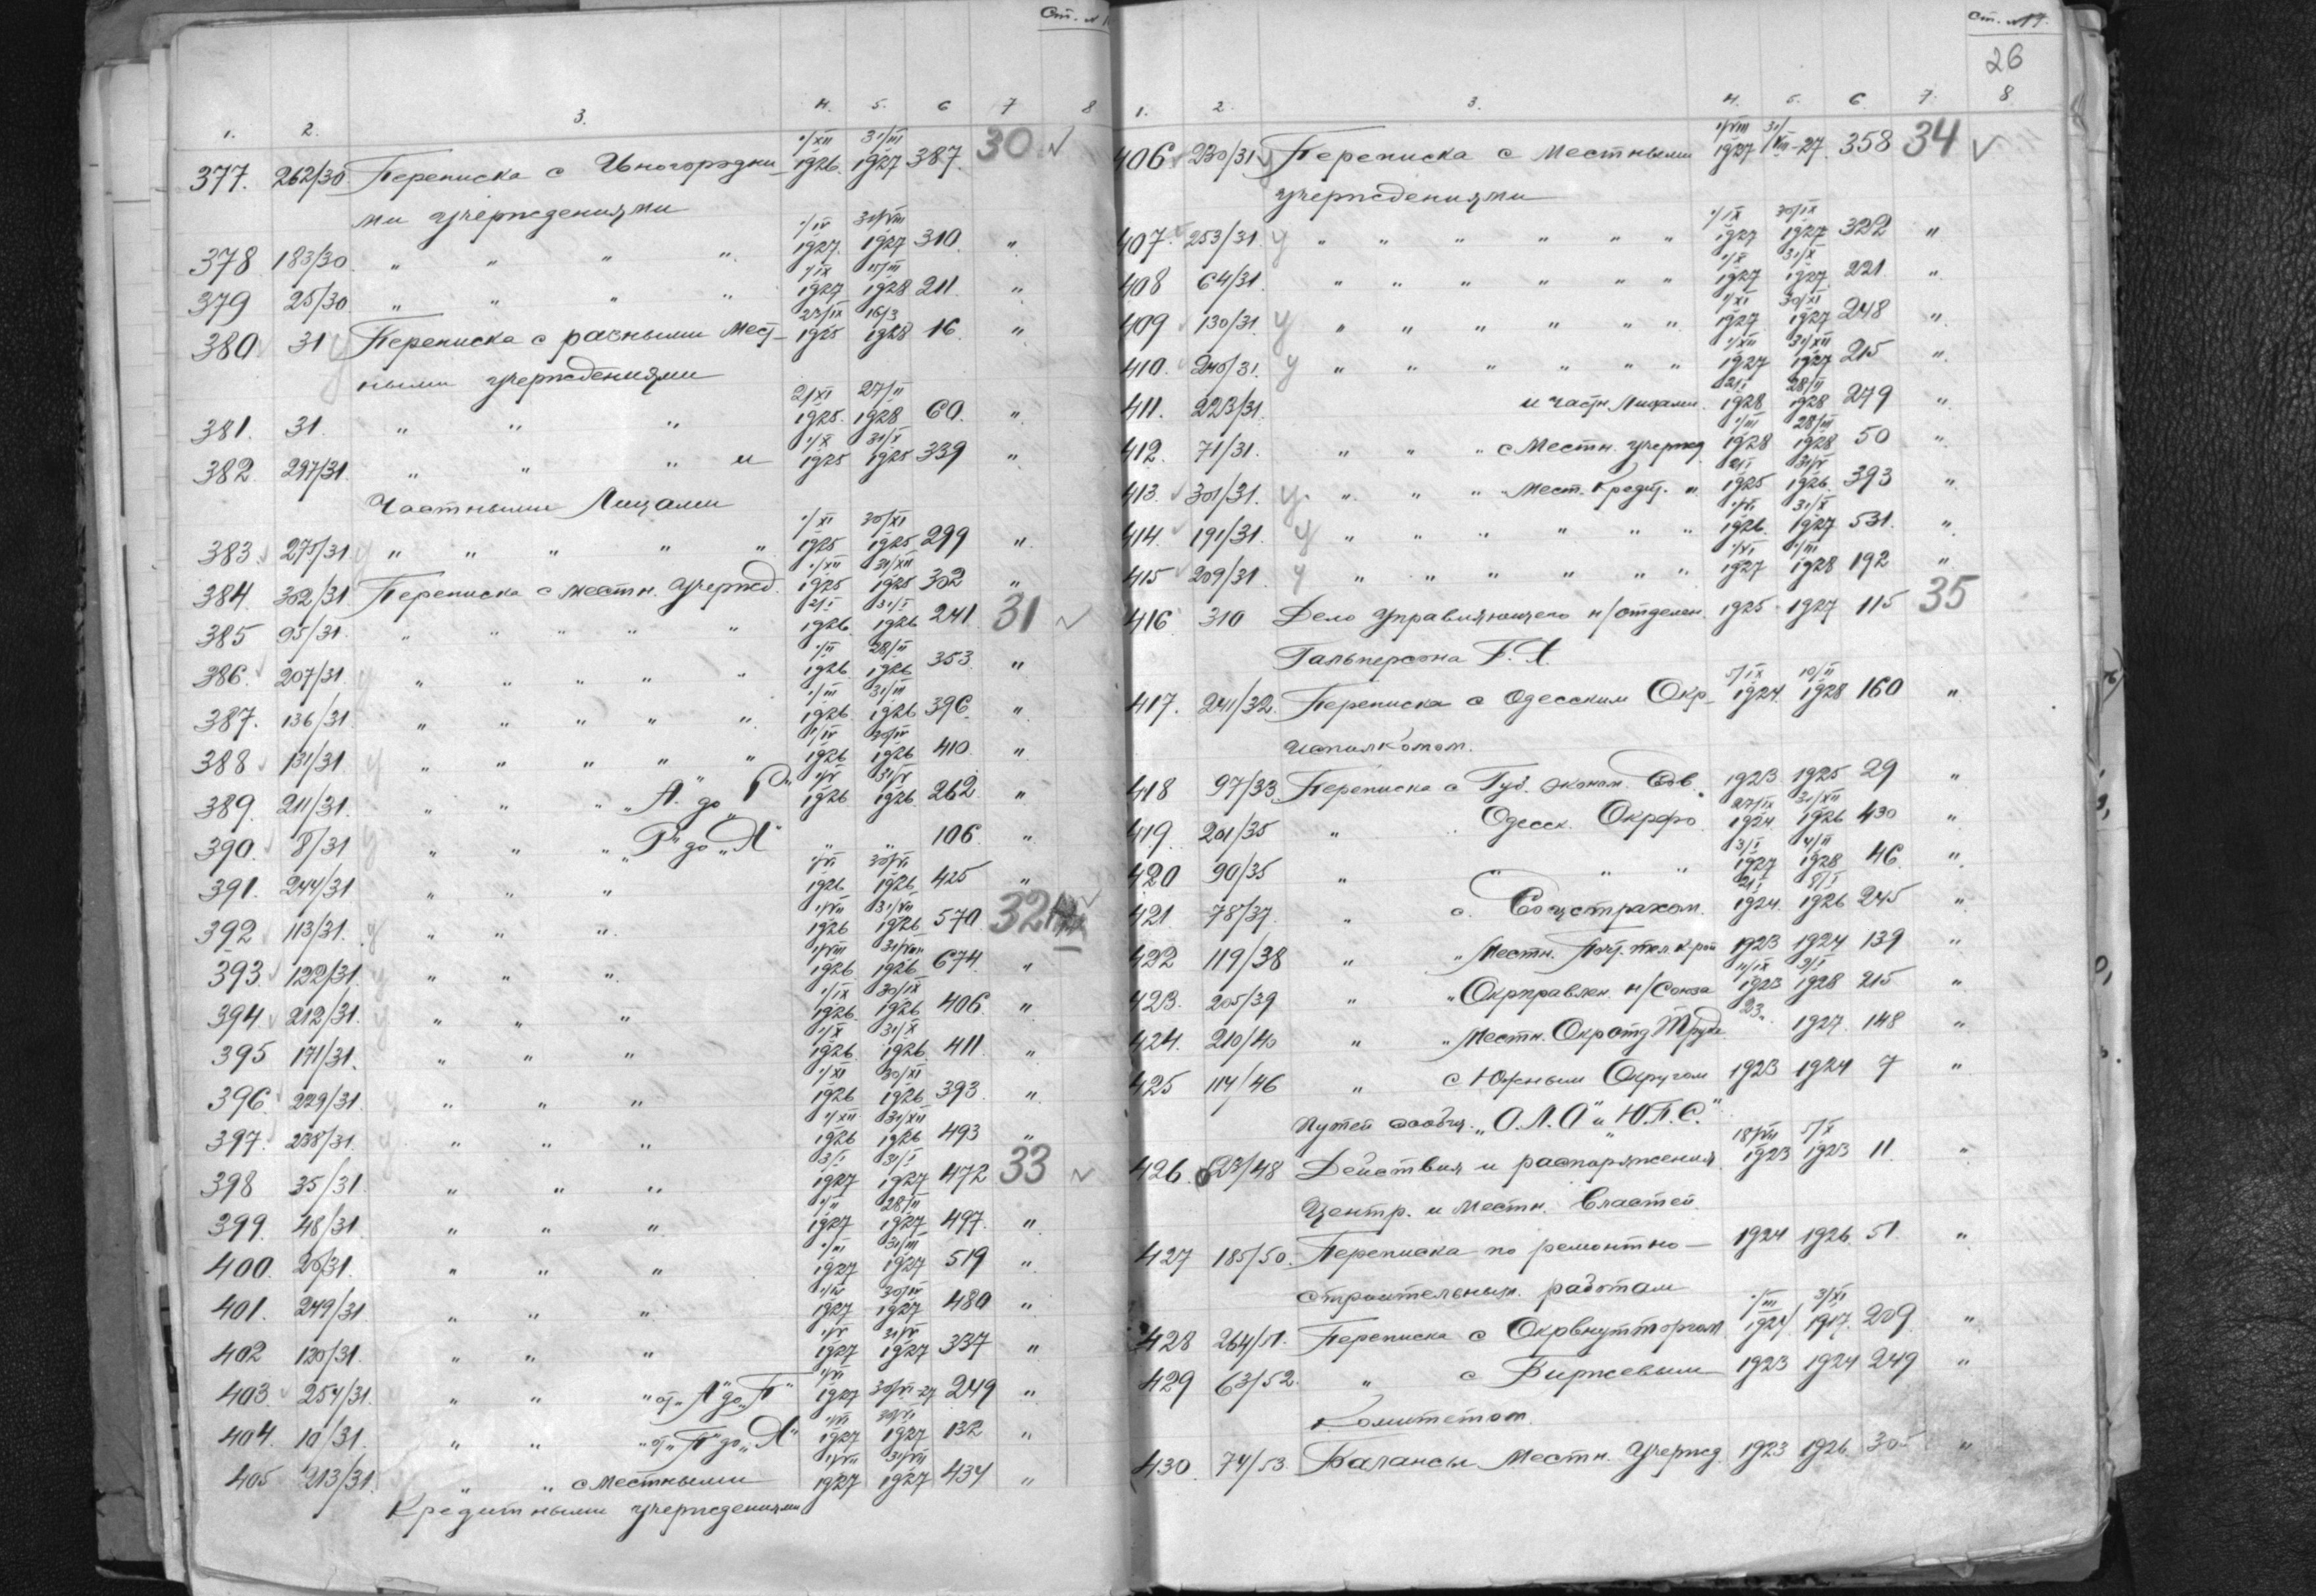 Ст. №
1. 2. 3. 4. 5. 6 7 8
377. 262/30 Переписка с Иногородни- 1/XII 1926. 31/III 1927 387. 30
ми учреждениями
378 183/30 " " " " 1/IV 1927. 31/VIII 1927 310. "
379 25/30 " " " " 1/IX 1927 1928 211. "
380 31 Переписка с разными мест- 1925 16/3 1928 16. "
ными учреждениями
381. 31. " " " 2/XI 1925. 27/II 1928 60. "
382. 297/31. " " " и 1/X 1925 31/X 1925 339 "
Частными Лицами
383 275/31 " " " " " 1/XI 1925 30/XI 1925 299 "
384. 302/31 Переписка с местн. учрежд. 1/XII 1925 31/XII 1925 302 "
385 95/31. " " " " " 2/I 1926. 31/I 1926 241. 31
386. 207/31. " " " " " 1/II 1926. 28/II 1926 353. "
387. 136/31 " " " " " 1/III 1926. 31/III 1926 396. "
388 131/31. у " " " " " 1/IV 1926 30/IV 1926 410. "
389. 211/31. " " " „А" до „Р" 1/V 1926 31/V 1926. 262. "
390. 8/31 у " " " „Р" до „Я" " " 106. "
391. 244/31 " " " 1/VI 1926 30/VI 1926 425 "
392 113/31. у " " " 1/VII 1926 31/VII 1926 570 32
393. 122/31. у " " " 1/VIII 1926 31/VIII 1926 674. "
394 212/31. у " " " 1/IX 1926. 30/IX 1926 406. "
395 171/31. " " " 1/X 1926. 31/X 1926. 411. "
396. 229/31. у " " " 1/XI 1926 30/XI 1926 393. "
397. 238/31. у " " " 1/XII 1926 31/XII 1926 493 "
398 35/31. " " " 3/I 1927 31/I 1927 472 33
399. 48/31. " " " 1/II 1927 28/II 1927 497. "
400. 20/31. " " " 1/III 1927 31/III 1927 519 "
401. 249/31. " " " 1/IV 1927 30/IV 1927 480 "
402 120/31. " " " 1/V 1927 31/V 1927 337 "
403. 254/31. " " " от „А" до „П" 1/VI 1927 30/VI-27 249 "
404. 10/31. " " " от „П" до „Я" 1/VI 1927 30/VI 1927 132 "
405 213/31. " " с местными 1/VII 1927 31/VII 1927 434 "
Кредитными учреждениями
Ст. №17.
26
1. 2. 3. 4. 5. 6. 7. 8
406 230/31 Переписка с Местными 1/VIII 1927 31/VIII-27. 358 34
учреждениями
407. 253/31. у " " " " " " 1/IX 1927 30/IX 1927 322 "
408 64/31. " " " " " " 1/X 1927 31/X 1927. 221. "
409 130/31. у " " " " " " 1/XI 1927. 30/XI 1927 248 "
410. 240/31. у " " " " " " 1/XII 1927 31/XII 1927 215 "
411. 223/31. и частн Лицами. 2/I 1928. 28/II 1928 279 "
412. 71/31. " " " с Местн. учрежд. 1/III 1928 28/III 1928 50 "
413. 301/31. у " " " " Мест. Кредит. " 2/I 1925 31/V 1926. 393 "
414. 191/31. у " " " " " " 1/VI 1926. 31/X 1927 531. "
415 209/31. у " " " " " " 1/XI 1927 1/III 1928 192 "
416 310 Дело Управляющего н/отделен. 1925 1927 115 35
Гальперсона
417. 241/32. Переписка с Одесским Окр- 5/IX 1924. 10/II 1928 160 "
исполкомом.
418 97/33 Переписка с Губ. эконом. Сов. 1923 1925 29 "
419. 201/35 " " Одесск. Окрфо. 27/IX 1924. 31/XII 1926 430 "
420 90/35 " " " " 3/I 1927 4/II 1928 46. "
421 78/37. " с. Соцстрахом. 2/I 1924. 8/I 1926 245 "
422 119/38 " " Местн. Почт. тел. 1923 1924 139 "
423. 205/39 " " Окрправлен. н/Союза 11/IX 1923 3/I 1928 215 "
424. 210/40 " " Местн. Окротд Труда 23 " 1927. 148 "
425 114/46 " с Южным Округом 1923 1924 7 "
путей сообщ. „О.Л.О" и „Ю.П.С."
426. 23/48 Действия и распоряжения 18/VII 1923 5/X 1923 11. "
Центр. и местн. Властей.
427 185/50. Переписка по ремонтно- 1924 1926. 51. "
строительным. работам
428 264/51. Переписка с Окрвнутторгом 1/III 1924 3/XI 1927. 209. "
429 63/52. " с Биржевым 1923 1924 249 "
Комитетом.
430. 74/53. Балансы Местн. Учрежд. 1923 1926. 305 "